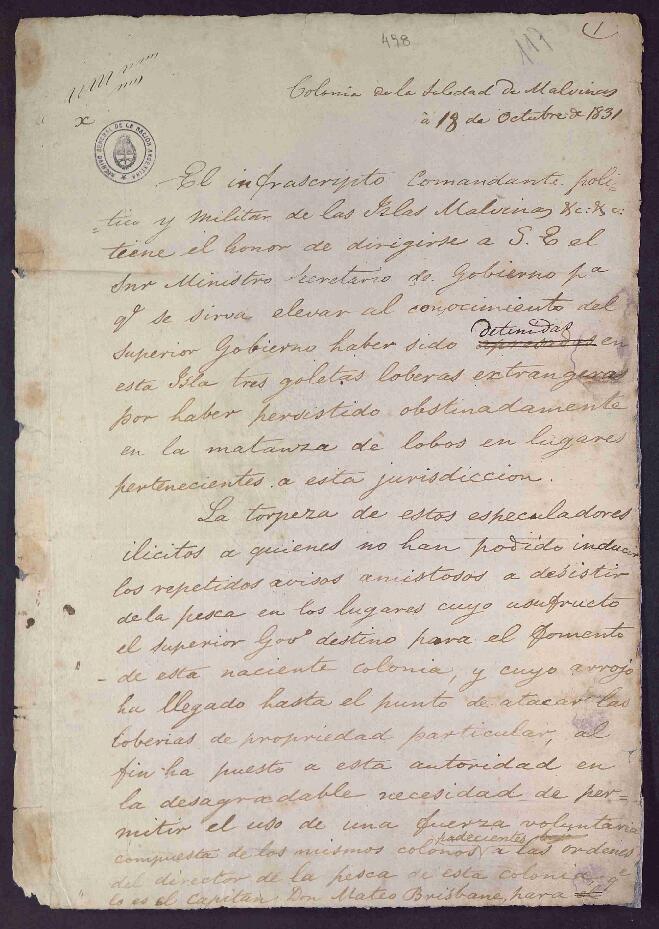 1
498
117
Colonia de la Soledad de Malvinas
à 18 de Octubre de 1831
x
ARCHIVO GENERAL DE LA NACION ARGENTINA
El infrascripto Comandante poli-
-tico y militar de las Islas Malvinas &c: &c:
tiene el honor de dirigirse a S. E el
Snr Ministro Secretario de Gobierno pa
qe se sirva elevar al conocimiento del
detenidas
superior Gobierno haber sido apresadas en
esta Isla tres goletas loberas extrangeras
por haber persistido obstinadamente
en la matanza de lobos en lugares
pertenecientes a esta jurisdiccion.
La torpeza de estos especuladores
ilicitos a quienes no han podido inducir
los repetidos avisos amistosos a desistir
de la pesca en los lugares cuyo usufructo
el superior Govo destino para el fomento
- de esta naciente colonia, y cuyo arrojo
ha llegado hasta el punto de atacar las
loberias de propriedad particular, al
fin ha puesto a esta autoridad en
la desagradable necesidad de per-
mitir el uso de una fuerza voluntaria
padecientes
compuesta de los mismos colonos a las ordenes
del director de la pesca de esta colonia, qe
lo es el Capitan Don Mateo Brisbane, para el